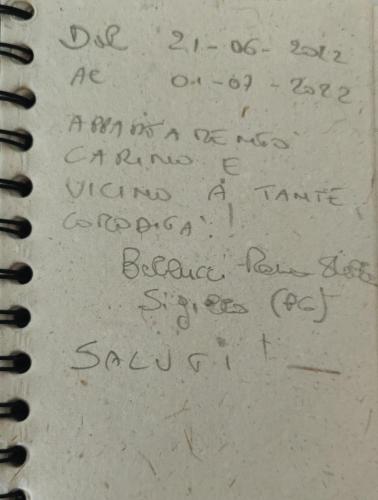 DAL 21-06-2022
AL 01-07-2022
APPARTAMENTO
CARINO E
VICINO A TANTE
COMODITA'!
Bellucci
Sigillo (PG)
SALUTI! —